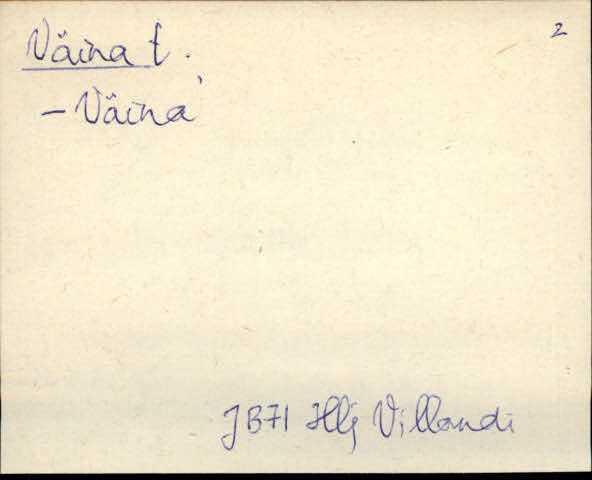 2
Väina t.
- Väina'
JB71 Hlj Villandi